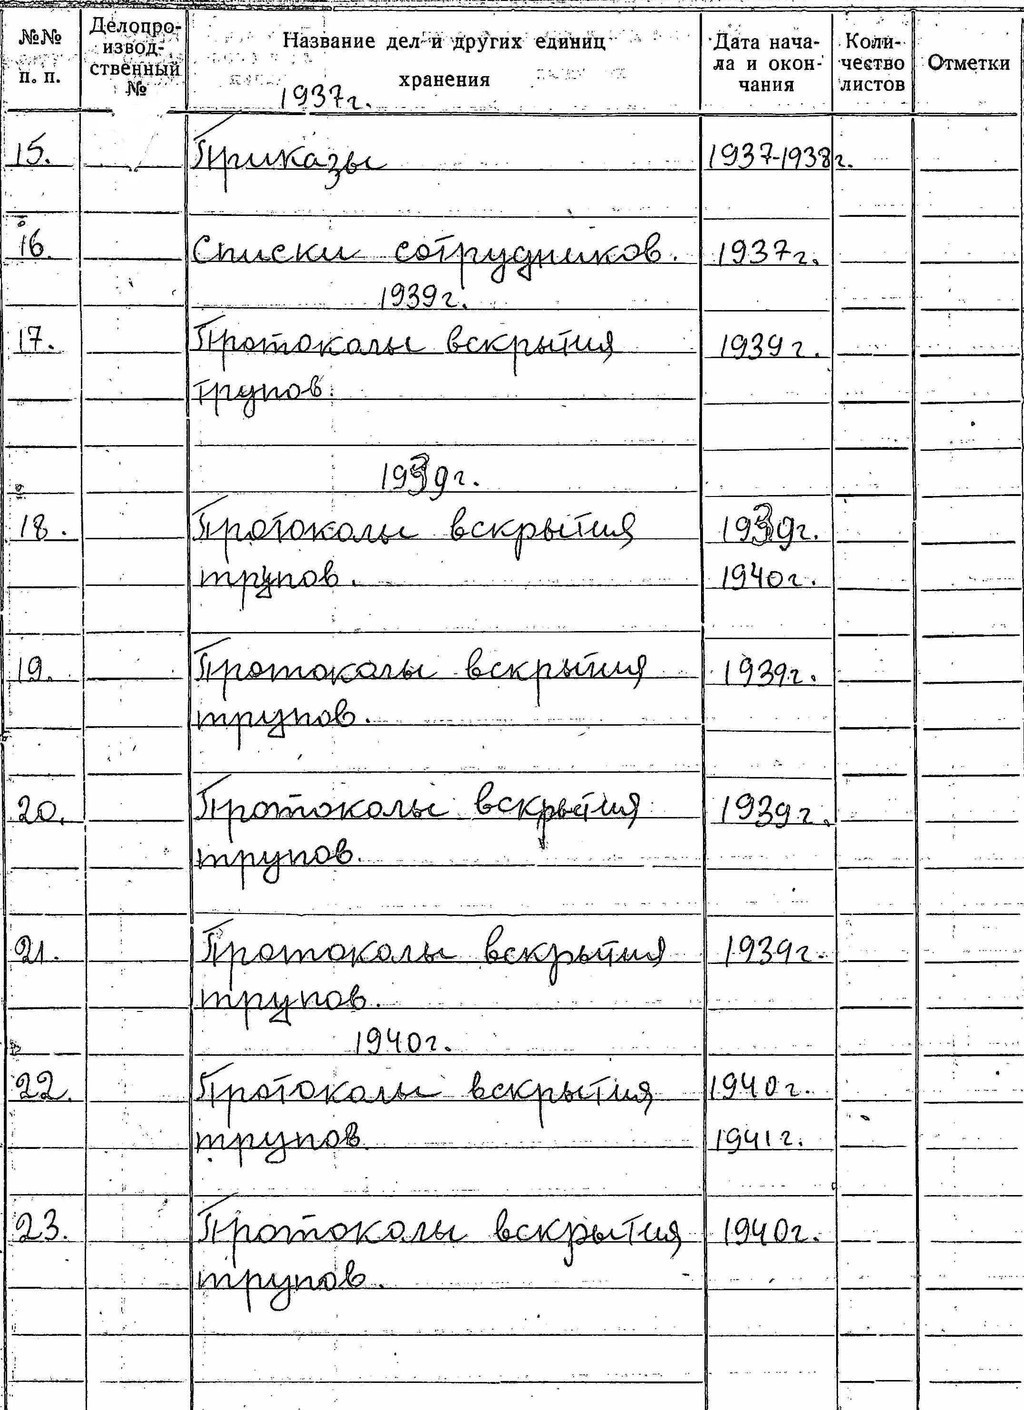 №№ п. п. Делопро-извод-ственный № Название дел и других единиц хранения Дата нача-ла и окон-чания Коли-чество листов Отметки
1937г.
15. Приказы 1937-1938г.
16. Списки сотрудников. 1937г.
1939г.
17. Протоколы вскрытия 1939г.
трупов.
1939г.
18. Протоколы вскрытия 1939г.
трупов. 1940г.
19. Протоколы вскрытия 1939г.
трупов.
20. Протоколы вскрытия 1939г.
трупов.
21. Протоколы вскрытия 1939г.
трупов.
1940г.
22. Протоколы вскрытия 1940г.
трупов 1941г.
23. Протоколы вскрытия 1940г.
трупов.